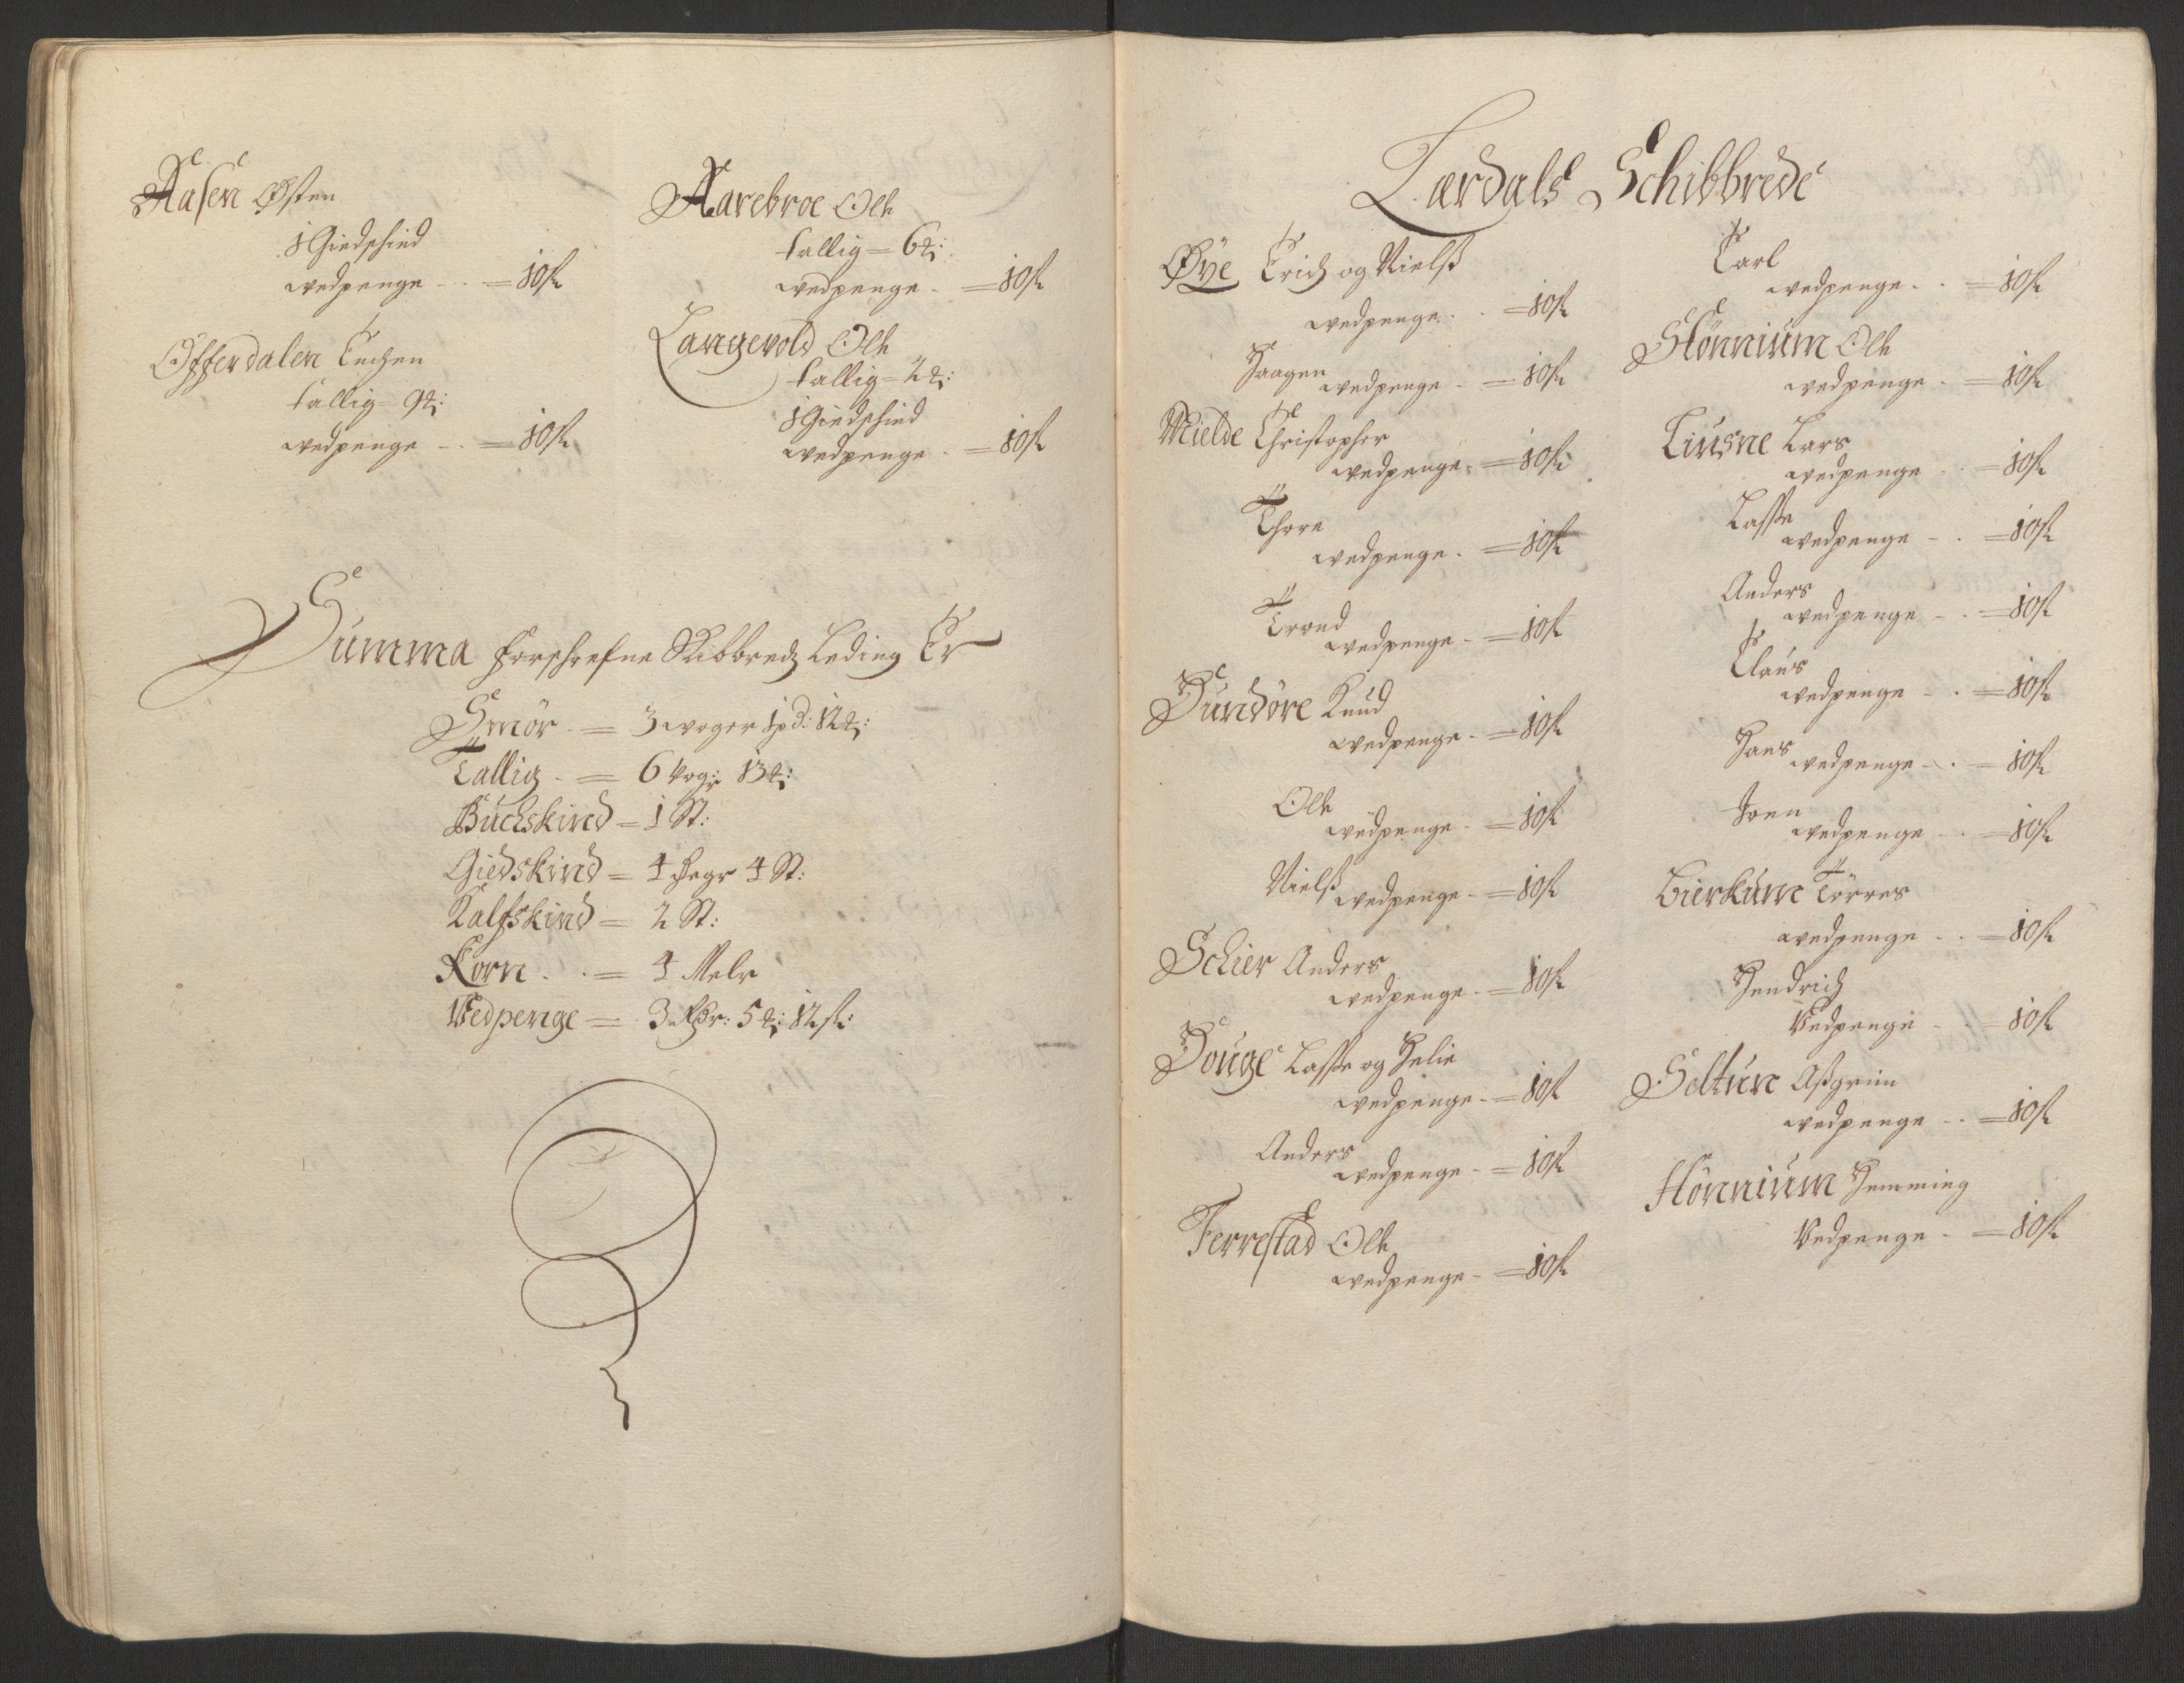 Aasen Østen
1 Giedschind
wedpenge - . = 10 s
Offerdalen Enchen
tallig = 9 ℔:
wedpenge - . = 10 s
Aarebroe Ole
tallig = 6 ℔:
wedpenge - = 10 s
Langevold Ole
tallig = 2 ℔:
1 Giedschind
wedpenge - = 10 s
Summa Forschrefne Skibbredz Leding Er
Smör - = 3 woger 1 pd: 12 ℔:
Tallig - = 6 wog: 13 ℔:
Buchskind = 1 St:
Giedskind = 4 Degr 4 St:
Kalfskind = 2 St:
Korn . . = 4 Melr
Vedpenge = 3 Rdr: 5 ℔: 12 s:
Lærdals Schibbrede
Øye Erich og Nielß
wedpenge . . = 10 s
Haagen
wedpenge - = 10 s
Mielde Christopher
wedpenge - = 10 s
Thore
wedpenge . = 10 s
Trond
wedpenge - = 10 s
Hundöre Knud
wedpenge - = 10 s
Ole
wedpenge - = 10 s
Nielß
wedpenge - = 10 s
Schier Anders
wedpenge - = 10 s
Houge Lasse og Helie
wedpenge - = 10 s
Anders
wedpenge - = 10 s
Ferrestad Ole
wedpenge - = 10 s
Carl
wedpenge . . = 10 s
Hönnium Ole
wedpenge - = 10 s
Liusne Lars
wedpenge . . = 10 s
Lasse
wedpenge - . = 10 s
Anders
wedpenge - . = 10 s
Claus
wedpenge - . = 10 s
Hans
wedpenge - . = 10 s
Joen
wedpenge - . = 10 s
Bierkum Törres
wedpenge - . = 10 s
Hendrich
Vedpenge - . = 10 s
Seltun Aßgrim
wedpenge - . = 10 s
Hönnium Hemming
Vedpenge - = 10 s